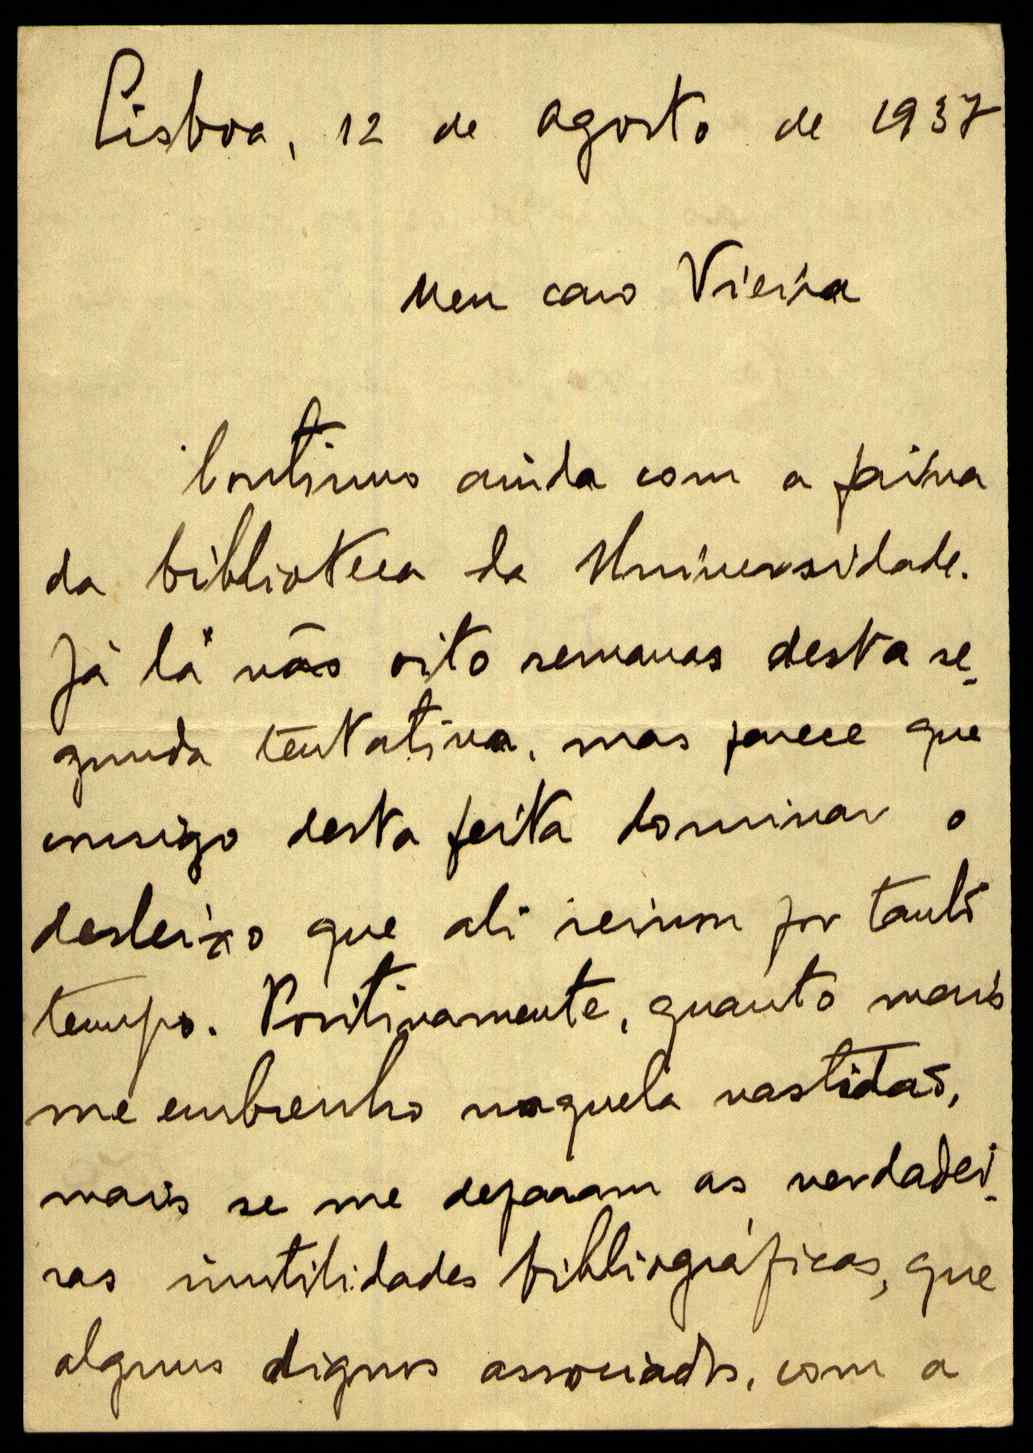 Lisboa, 12 de agosto de 1937
Meu caro Vieira
Continuo ainda com a faina
da biblioteca da Universidade.
Já lá vão oito semanas desta se-
gunda tentativa, mas parece que
consigo desta feita dominar o
desleixo que ali reinou por tanto
tempo. Positivamente, quanto mais
me embrenho naquela vastidão,
mais se me deparam as verdadei-
ras inutilidades bibliográficas, que
alguns dignos associados, com a